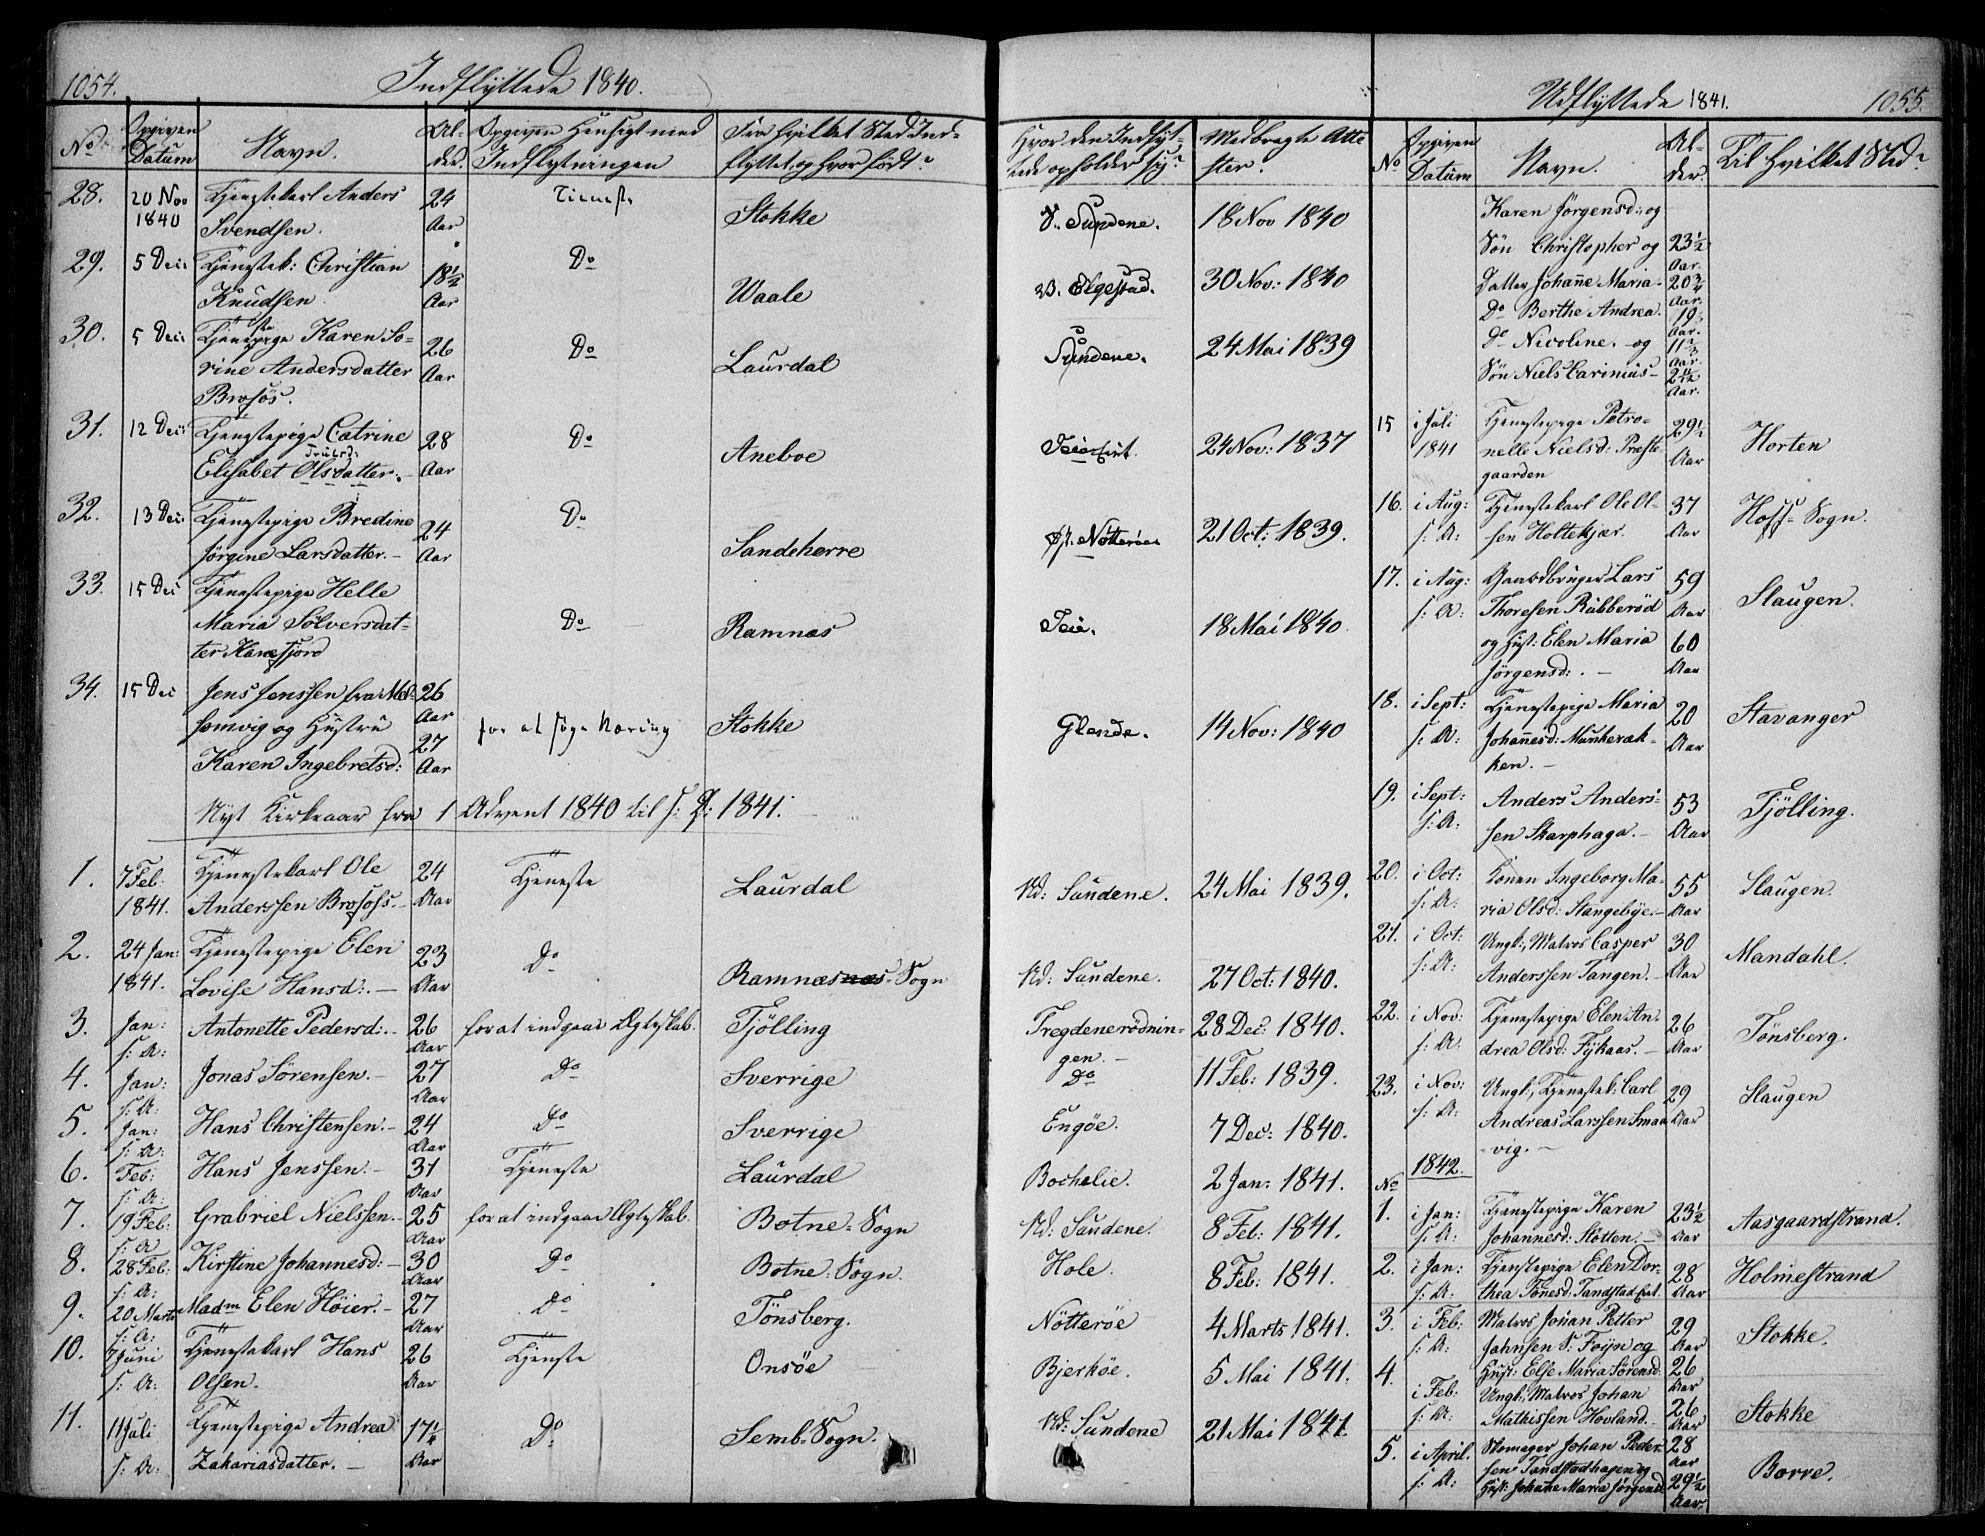 1054.
Indflyttede 1840.
No
Opgiven Datum
Navn.
Alder.
Opgiven Hensigt med Indflytningen
Fra hvilket Sted Indflyttet og hvor født?
Hvor den Indflyttede opholder sig?
Medbragte Attester.
28. 20 Nov 1840 Tjenestekarl Anders Svendsen. 24 Aar Tieneste Stokke Sundene. 18 Nov 1840
29. 5 Dec: Tjenestek: Christian Knudsen. 18½ Aar Do Waale Elgestad. 30 Nov: 1840
30. 5 Dec: Tjenestepige Karen Sorine Andersdatter Brosøs. 26 Aar Do Laurdal Sundene. 24 Mai 1839
31. 12 Dec: Tjenestepige Catrine Elisabet Olsdatter. 28 Aar Do Aneboe 24 Nov: 1837
32. 13 Dec: Tjenestepige Bredine Jørgine Larsdatter. 24 Aar Do Sandeherre Nøtterøe 21 Oct: 1839.
33. 15 Dec Tjenestepige Helle Maria Sølversdatter Do Ramnæs Teie. 18 Mai 1840.
34. 15 Dec Jens Jenssen fra Melsomvig og Hustru Karen Ingebretsd: 26 Aar 27 Aar for at søge Næring Stokke Glende. 14 Nov: 1840
Nyt Kirkeaar fra 1 Advent 1840 til s: D: 1841.
1. 7 Feb: 1841. Tjenestekarl Ole Anderssen Brosøhs. 24 Aar Tjeneste Laurdal Nd: Sundene. 24 Mai 1839.
2. 24 Jan: 1841. Tjenestepige Elen Lovise Hansd:. 23 Aar Do Ramnæsnæs-Sogn Nd: Sundene. 27 Oct: 1840.
3. Jan: s: A: Antonette Pedersd:. 26 Aar for at indgaae Ægteskab. Tjølling Tregdenerødningen. 28 Dec: 1840.
4. Jan: s: A: Jonas Sørensen. 27 Aar Do Sverrige Do 11 Feb: 1839.
5. Jan: s: A: Hans Christensen. 24 Aar Do Sverrige Engøe. 7 Dec: 1840.
6. Feb: s: A: Hans Jenssen. 31 Aar Tjeneste Laurdal Bochelie. 2 Jan: 1841.
7. 19 Feb: s: A Grabriel Nielssen. 25 Aar for at indgaae Ægteskab. Botne-Sogn Nd: Sundene. 8 Feb: 1841.
8. 28 Feb: s: A: Kirstine Johannesd: 30 Aar Do Botne-Sogn. Hole. 8 Feb: 1841.
9. 20 Marts s: A: Madm Elen Høier. 27 Aar Do Tønsberg. Nøtterøe 4 Marts 1841.
10. 7 Juni s: A: Tjenestekarl Hans Olsen. 26 Aar Tjenste Onsøe Bjerkøe. 5 Mai 1841.
11. 11 Juli s: A: Tjenestepige Andrea Zakariasdatter. 17¼ Aar Do Semb-Sogn. Nd: Sundene 21 Mai 1841
Udflyttede 1841.
1055.
No
Opgiven Datum
Navn.
Alder.
Til hvilket Sted?
Karen Jørgensd: og
Søn Christopher og 23½ Aar.
Datter Johanne Maria 20¾ Aar.
Do Berthe Andrea. 19 Aar.
Do Nicoline. og 11 Aar.
Søn Niels Carinius 2 Aar.
15 i Juli 1841 Tjenestepige Petronelle Nielsd: Præstegaarden 29½ Aar Horten
16. i Aug: s: A: Tjenestekarl Ole Olsen Holtekjær. 37 Aar Hoff-Sogn.
17. i Aug: s: A: Gaardbruger Lars Thoresen Rubberød og Hust: Elen Maria Jørgensd:. 59 Aar 60 Aar Slaugen.
18. i Sept: s: A: Tjenestepige Maria Johannesd: Munkerækken. 20 Aar Stavanger
19. i Sept: s: A: Anders Anderssen Skarphaga. 53 Aar Tjølling.
20. i Oct: s: A: Konen Ingeborg Maria Olsd: Stangebye. 55 Aar Slaugen.
21. i Oct: s: A: Ungk:, Matros Casper Anderssen Tangen. 30 Aar Mandahl.
22. i Nov: s: A: Tjenestepige Elen Andrea Olsd: Fykaas. 26 Aar Tønsberg.
23. i Nov: s: A: Ungk:, Tjenestek: Carl Andreas Larssen Smaavig. 29 Aar Slaugen
No 1842.
1. i Jan: s: A: Tjenestepige Karen Johannesd: Støtten. 23½ Aar Aasgaardstrand.
2. i Jan: s: A: Tjenstepige Elen Dorthea Tønesd: Tandstad Eiet. 28 Aar Holmestrand
3. i Feb: s: A: Matros Johan Petter Jahnsen S: Føyn og Hust: Else Maria Sørensd. 29 Aar 26 Aar Stokke.
4. i Feb: s: A: Ungk:, Matros Johan Mathissen Hovland. 26 Aar Stokke
5. i April. s: A: Skomager Johan Pedersen Tandstadhagen og Hust: Johanne Maria Jørgensd 28 Aar 29½ Aar. Borre.